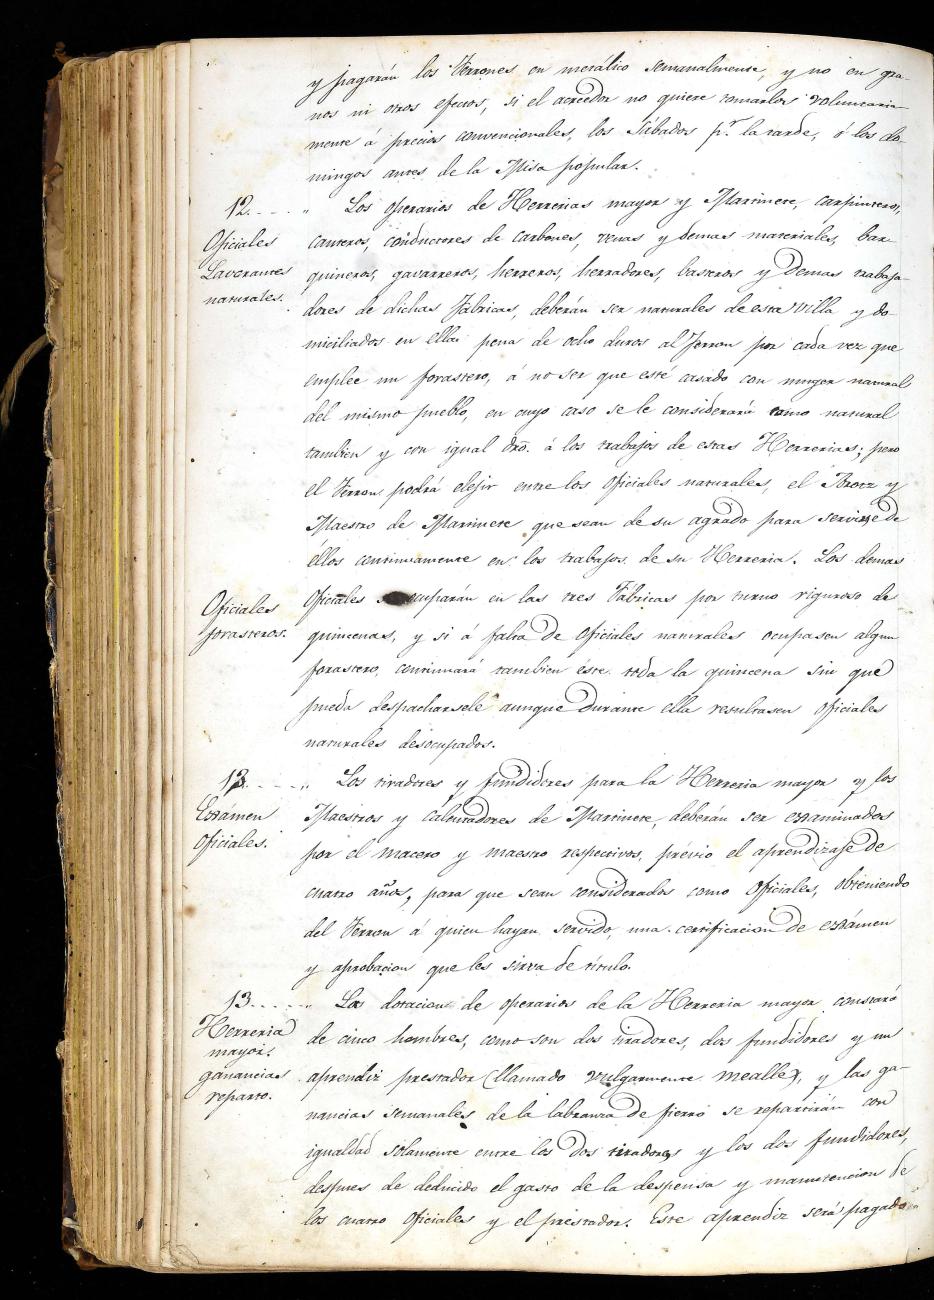 y pagarán los Ferrones en metálico semanalmente, y no en gra-
nos ni otros efectos, si el acreedor no quiere tomarlos voluntaria-
mente á precios convencionales, los Sábados pr. la tarde, ó los do-
mingos antes de la Misa popular.
12.... „ Los operarios de Herrerias mayor y Martinete, carpinteros,
Oficiales
canteros, conductores de carbones, venas y demas materiales, bar-
Lavorantes
quineros, gavarreros, herreros, herradores, basteros y demas trabaja-
naturales.
dores de dichas Fábricas, deberán ser naturales de esta Villa y do-
miciliados en ella: pena de ocho duros al Ferron por cada vez que
emplee un forastero, á no ser que esté casado con muger natural
del mismo pueblo, en cuyo caso se le considerará como natural
tambien y con igual dro. á los trabajos de estas Herrerias; pero
el Ferron podrá elejir entre los oficiales naturales, el Arotz y
Maestro de Martinete que sean de su agrado para servirse de
éllos continuamente en los trabajos de su Herreria. Los demas
Oficiales
Oficiales se ocuparán en las tres Fábricas por turno riguroso de
forasteros.
quincenas, y si á falta de oficiales naturales ocupasen algun
forastero, continuará tambien este toda la quincena sin que
pueda despacharsele aunque durante ella resultasen oficiales
naturales desocupados.
13.... „ Los tiradores y fundidores para la Herreria mayor y los
Exámen
Maestros y Calentadores de Martinete, deberán ser examinados
Oficiales.
por el macero y maestro respectivos, prévio el aprendizaje de
cuatro años, para que sean considerados como oficiales, obteniendo
del Ferron á quien hayan servido, una certificacion de exámen
y aprobacion que les sirva de título.
13..... „ La dotacion de operarios de la Herreria mayor constará
Herreria
de cinco hombres, como son dos tiradores, dos fundidores y un
mayor:
ganancias
aprendiz prestador (llamado vulgarmente mealle), y las ga-
reparto.
nancias semanales de la labranza de fierro se repartirán con
igualdad solamente entre los dos tiradores y los dos fundidores,
despues de deducido el gasto de la despensa y manutencion de
los cuatro oficiales y el prestador. Este aprendiz será pagado